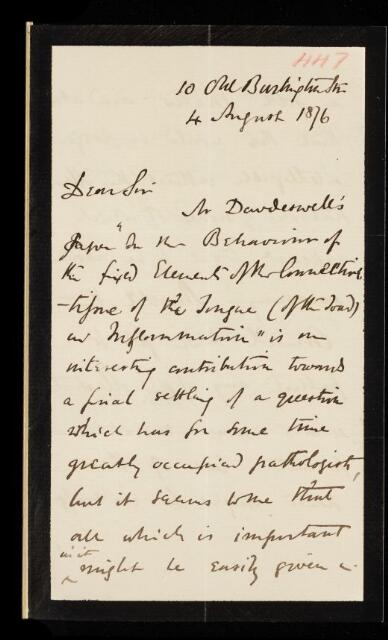 447
10 Old Burlington St.
4 August 1876
Dear Sir
Mr Dowdeswell's
paper "On the Behaviour of
the fixed Elements of the Connective
-tissue of the Tongue (of the Toad)
in Inflammation" is an
interesting contribution towards
a final settling of a question
which has for some time
greatly occupied pathologists,
but it seems to me that
all which is important
in it
might be easily given in